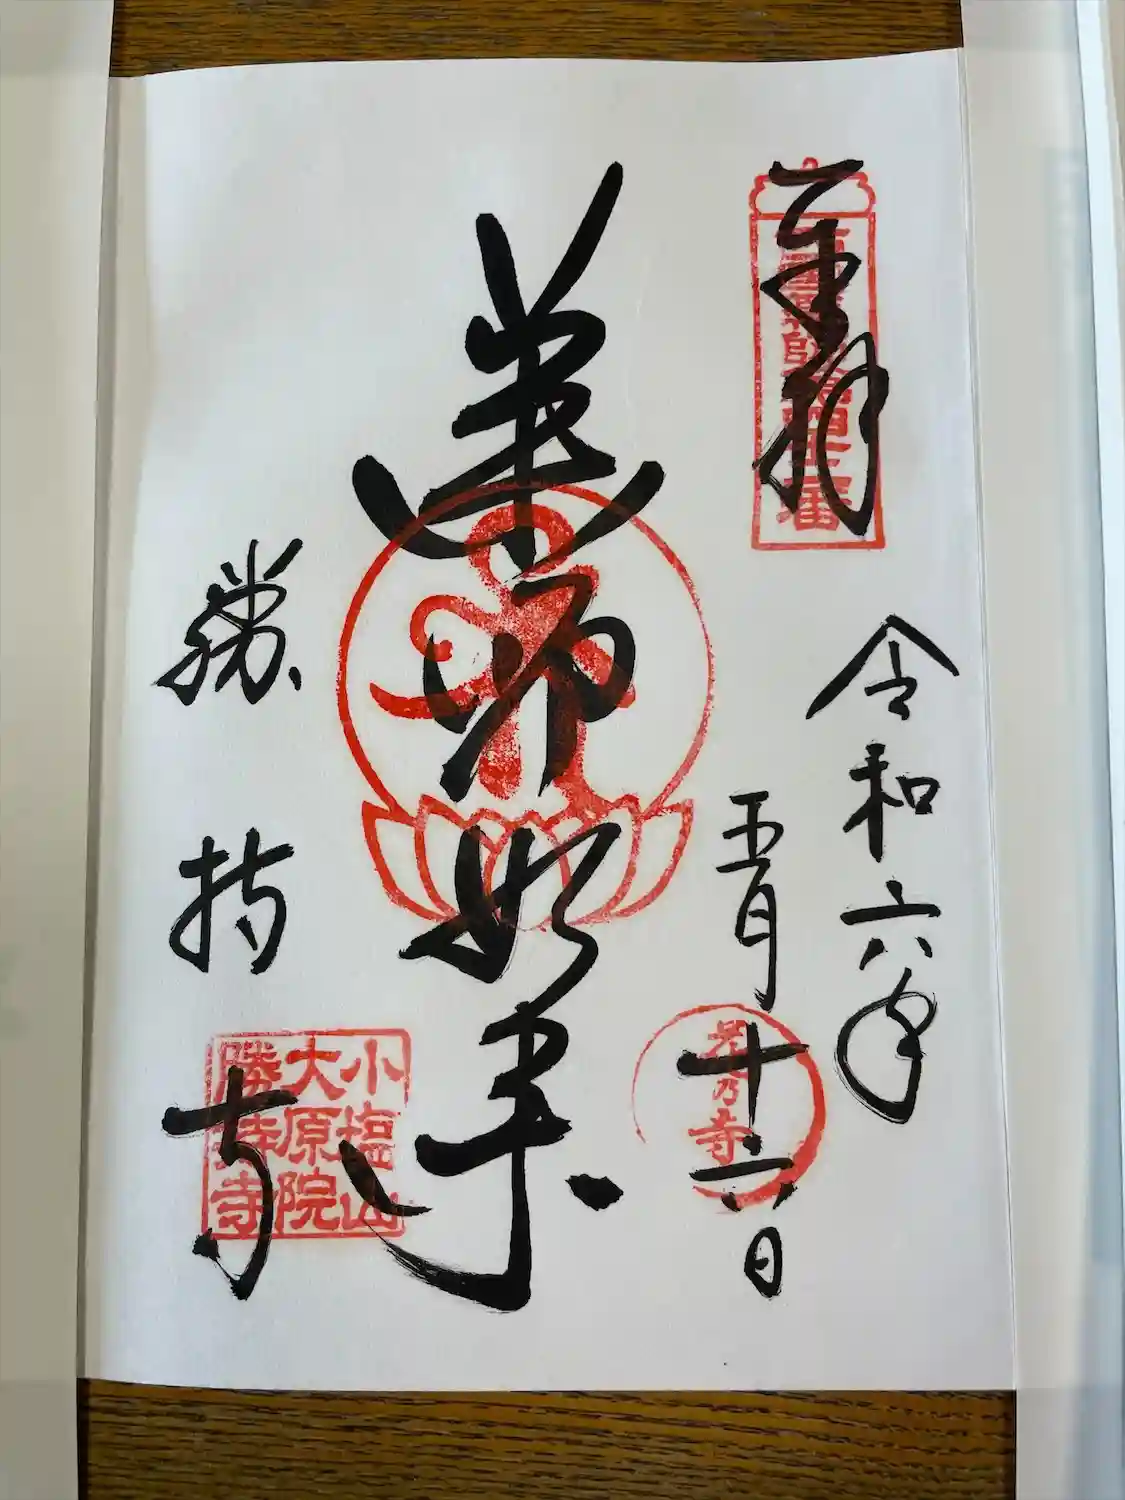 奉拝
四十二番
令和六年
五月十六日
花乃寺
薬師如来
勝持寺
小塩山
大原院
勝持寺